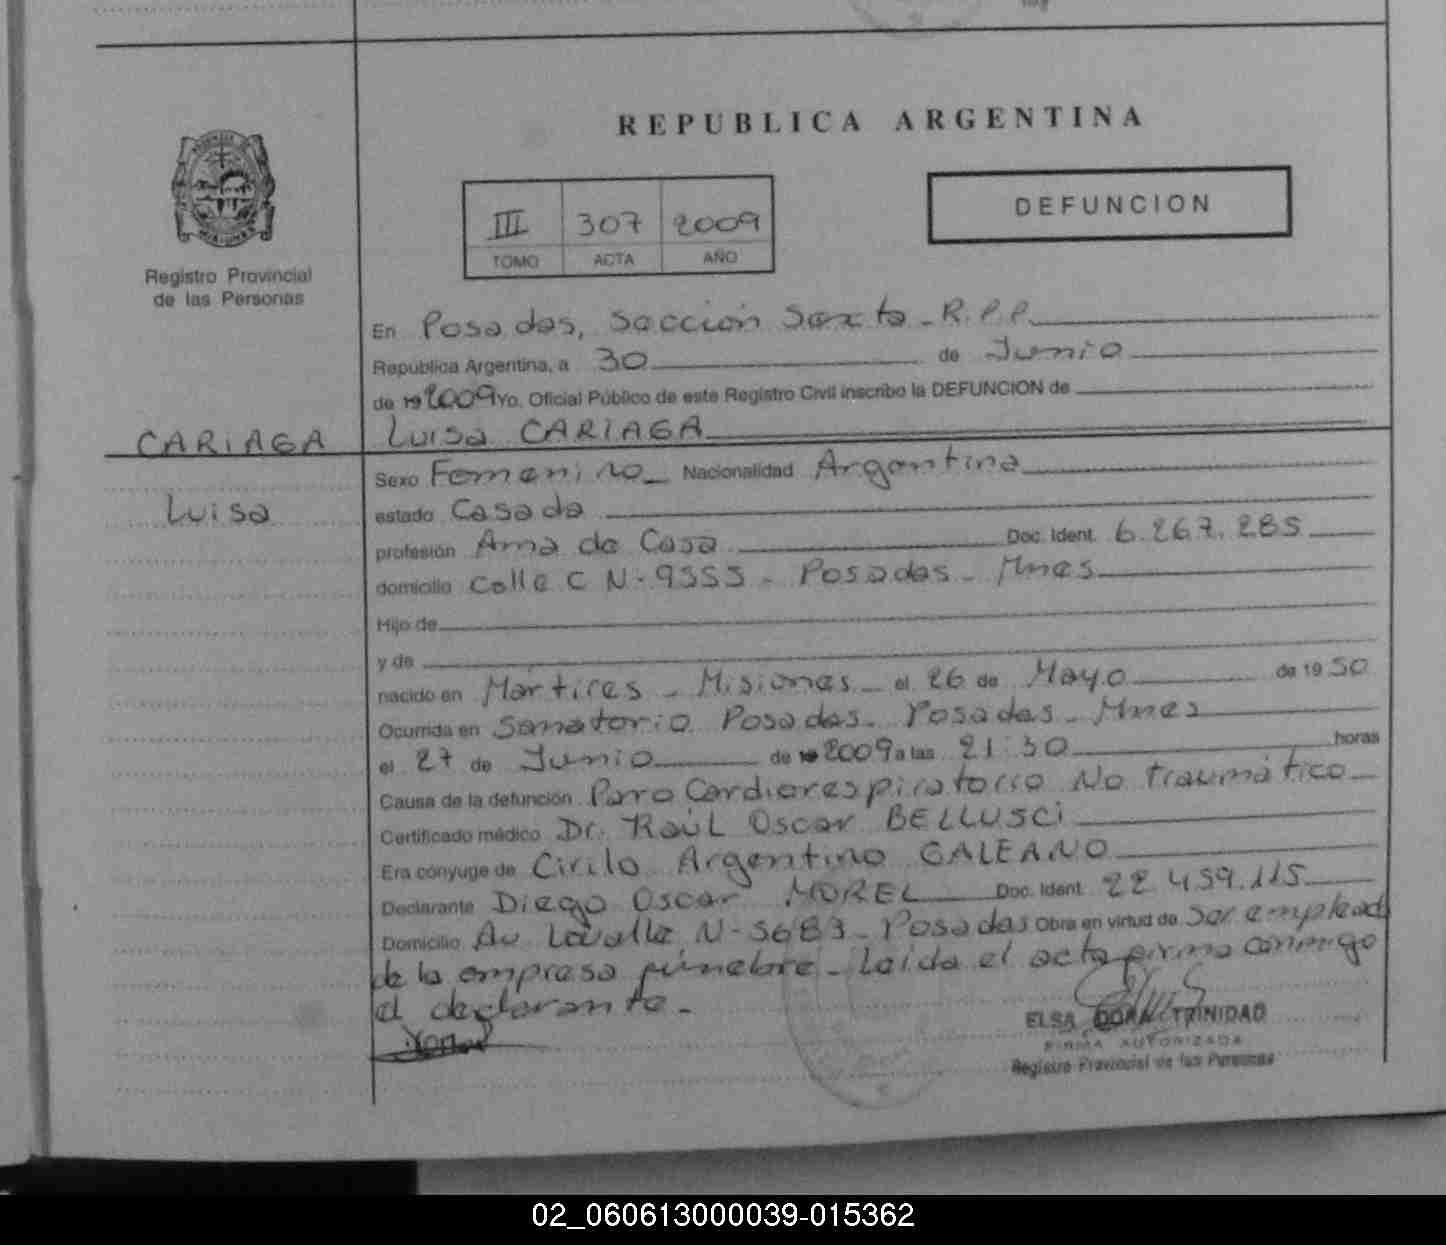 REPUBLICA ARGENTINA
III 307 2009
TOMO ACTA AÑO
DEFUNCION
Registro Provincial
de las Personas
En Posadas, Sección Sexta - R.P.P.
República Argentina, a 30 de Junio
de 19 2009 Yo, Oficial Público de este Registro Civil inscribo la DEFUNCION de
CARIAGA Luisa CARIAGA
Luisa
Sexo Femenino Nacionalidad Argentina
estado Casada
profesión Ama de Casa Doc. Ident. 6.267.285
domicilio Calle C N-9553 - Posadas - Mnes
Hijo de
y de
nacido en Mártires - Misiones el 26 de Mayo de 19 50
Ocurrida en Sanatorio Posadas - Posadas - Mnes
el 27 de Junio de 19 2009 a las 21:30 horas
Causa de la defunción Paro Cardiorespiratorio No traumático
Certificado médico Dr. Raúl Oscar BELLUSCI
Era cónyuge de Cirilo Argentino GALEANO
Declarante Diego Oscar MOREL Doc. Ident. 22.459.115
Domicilio Av Lavalle N-5683 - Posadas Obra en virtud de ser emplead
de la empresa fúnebre - Leída el acta firma conmigo
el declarante. -
ELSA DORA TRINIDAD
FIRMA AUTORIZADA
Registro Provincial de las Personas
02_060613000039-015362